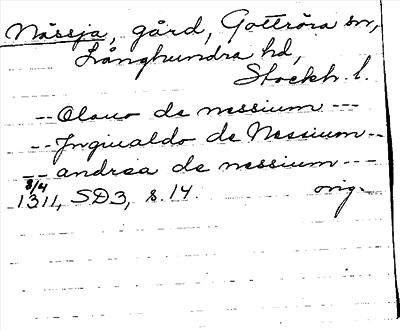 Nässja, gård, Gottröra sn,
Långhundra hd,
Stockh. l.
-- Olauo de nessium ---
-- Jnguualdo de Nessium --
-- andrea de nessium ---
8/4
1311, SD3, s. 14. orig.